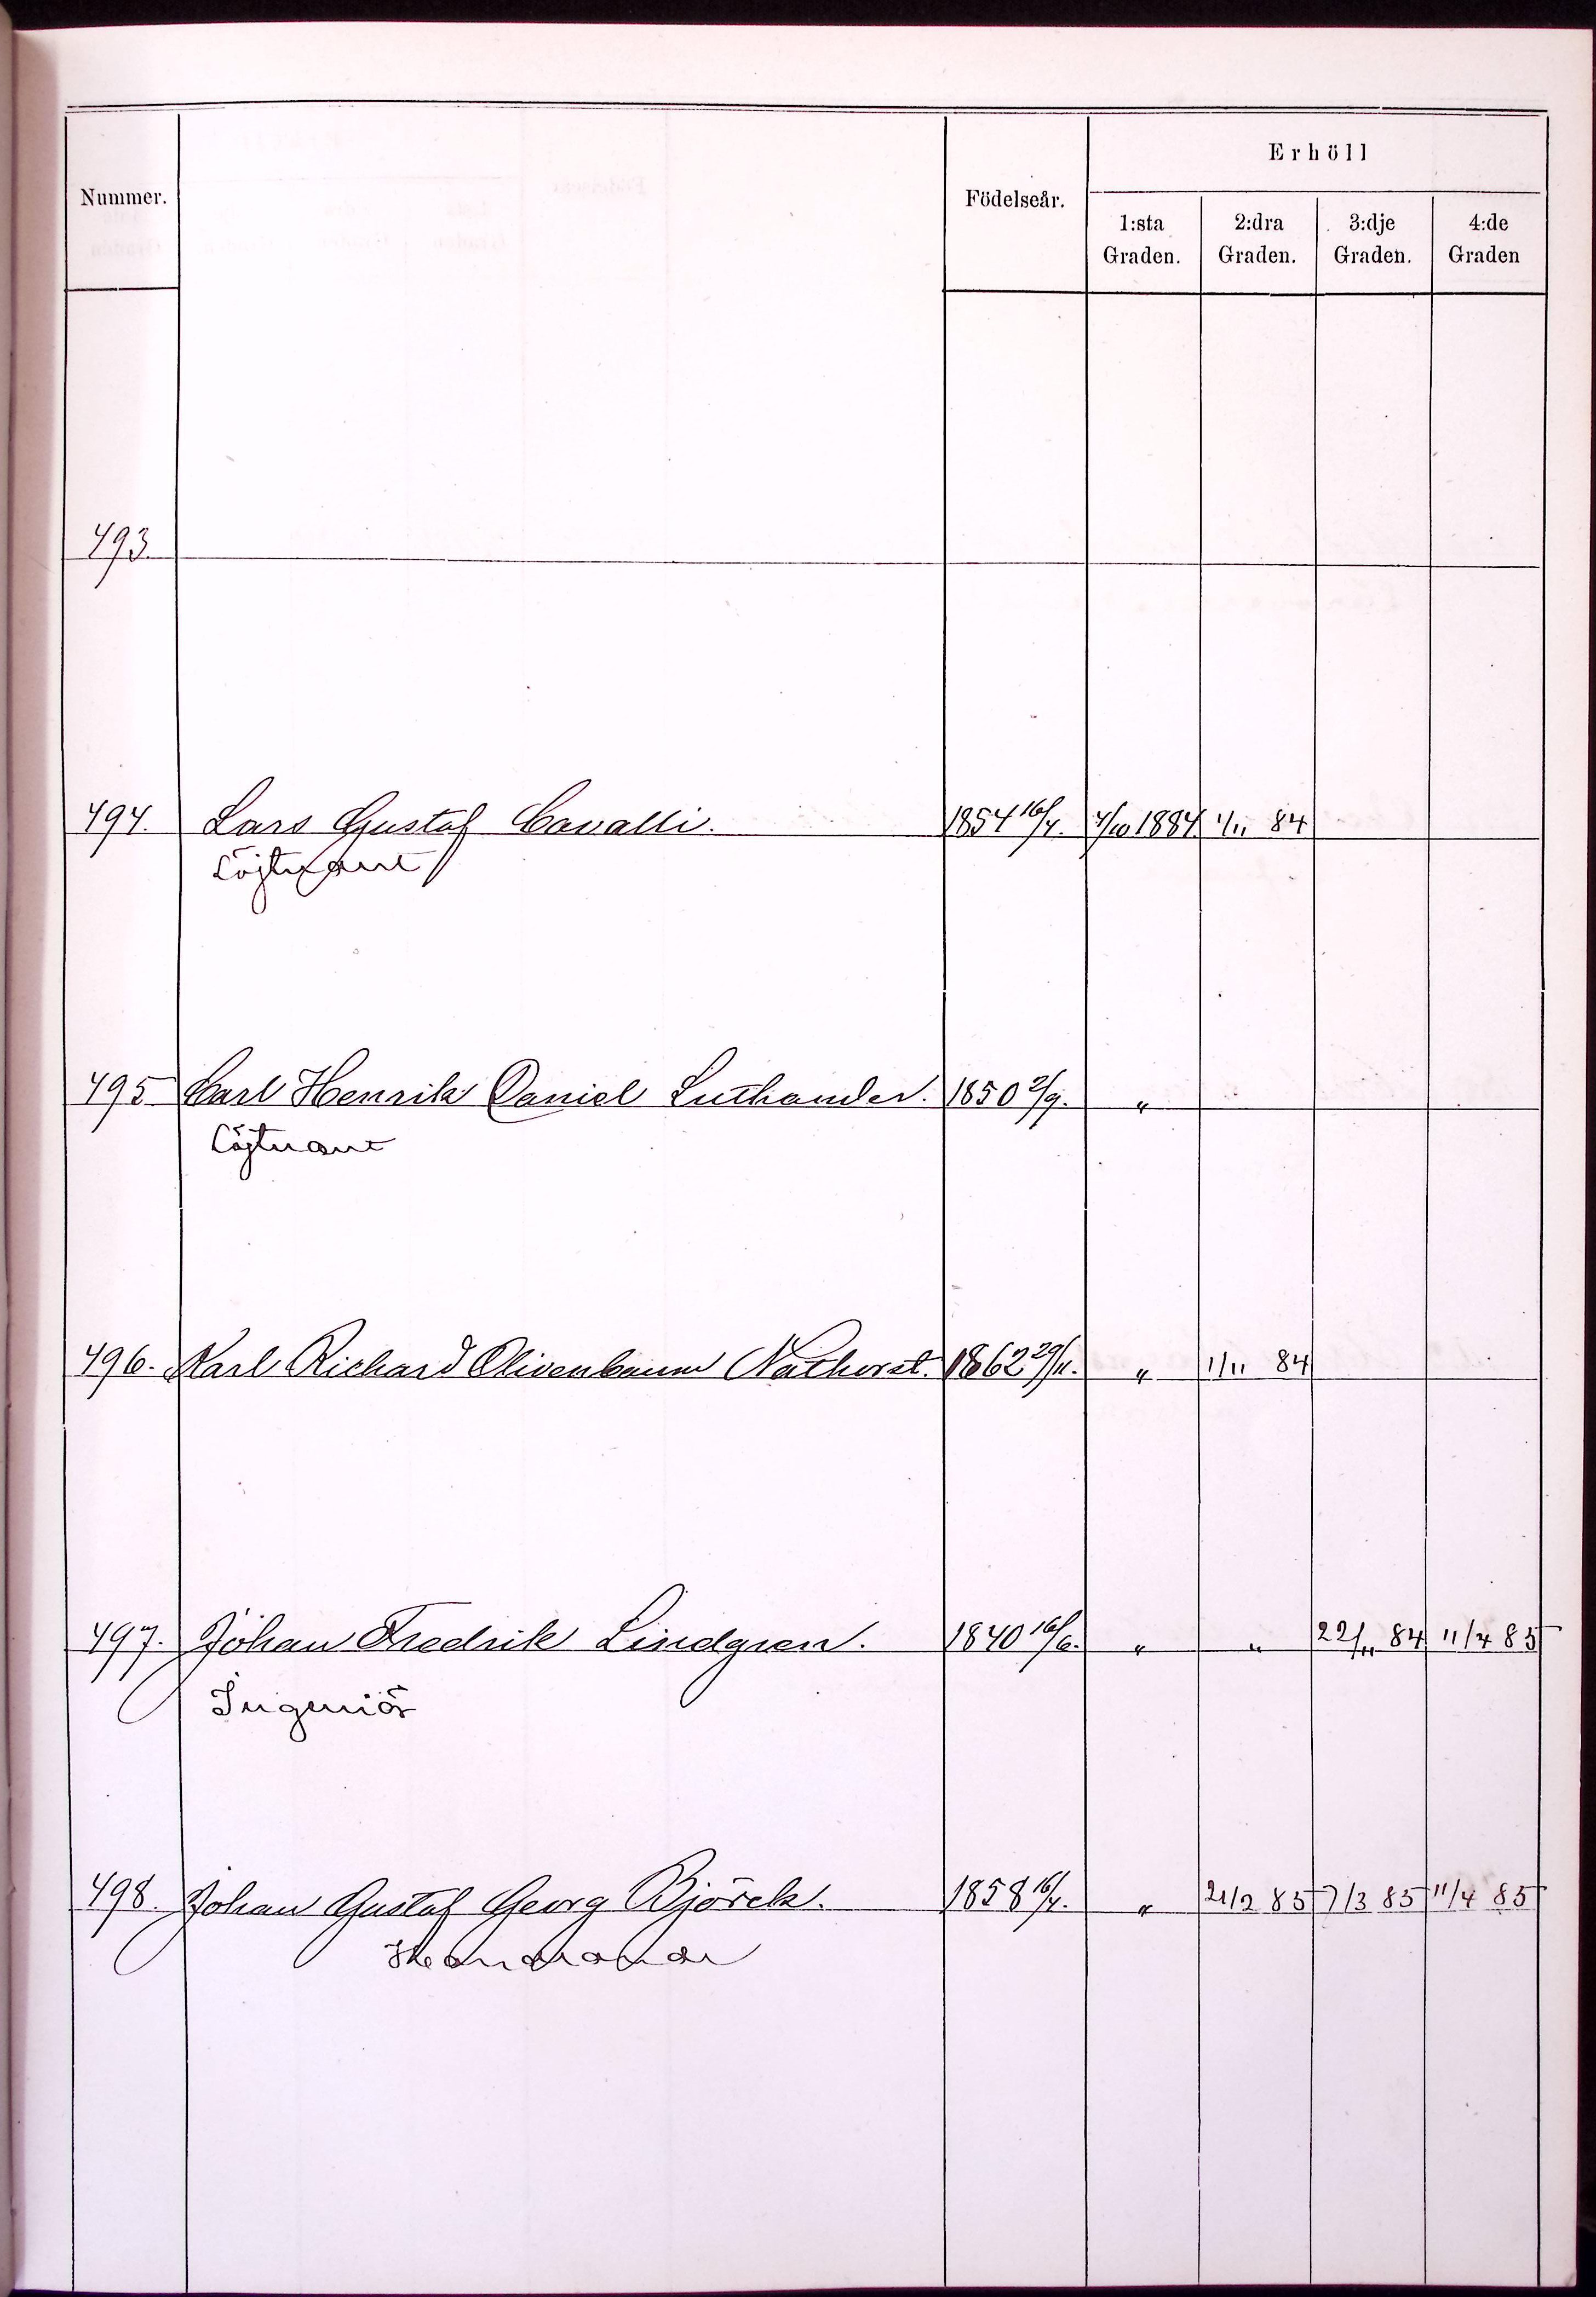 Nummer.
Födelseår.
Erhöll
1:sta Graden.
2:dra Graden.
3:dje Graden.
4:de Graden
493
494. Lars Gustaf Cavalli. 1854 16/4. 4/10 1884 1/11 84
Löjtnant
495 Carl Henrik Daniel Luthander. 1850 2/9. "
Löjtnant
496. Karl Richard Olivenbaum Nathorst. 1862 29/11. " 1/11 84
497. Johan Fredrik Lindgren. 1840 16/6. " " 22/11 84 11/4 85
Ingeniör
498. Johan Gustaf Georg Björck. 1858 16/4. " 21/2 85 7/3 85 11/4 85